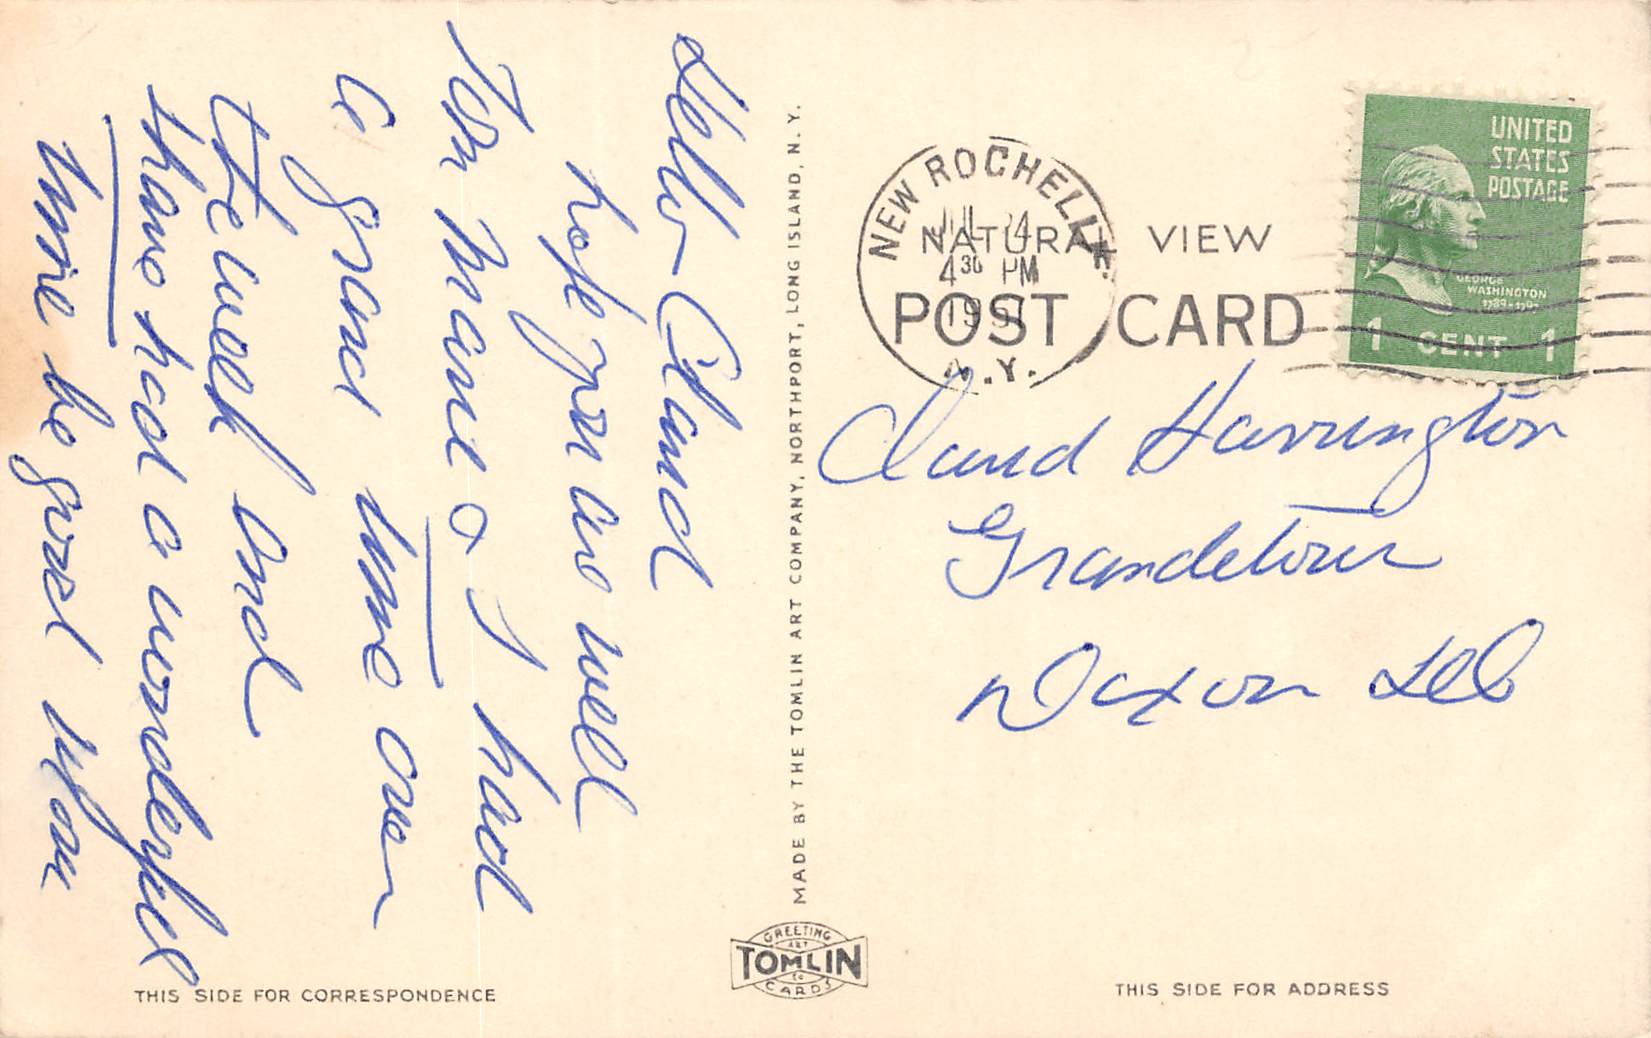 Hello Claud
hope you are well
Tom Marie & I had
a grand time over
the week end
thans had a wonderful
time be good Mom
MADE BY THE TOMLIN ART COMPANY, NORTHPORT, LONG ISLAND, N. Y.
GREETING
ART
TOMLIN
CO
CARDS
THIS SIDE FOR CORRESPONDENCE
NEW ROCHELLE
JUL 24
4 30 PM
N.Y.
NATURAL VIEW
POST CARD
UNITED
STATES
POSTAGE
GEORGE
WASHINGTON
1789-1797
1 CENT 1
Claud Harrington
Grandetour
Dixon Ill
THIS SIDE FOR ADDRESS